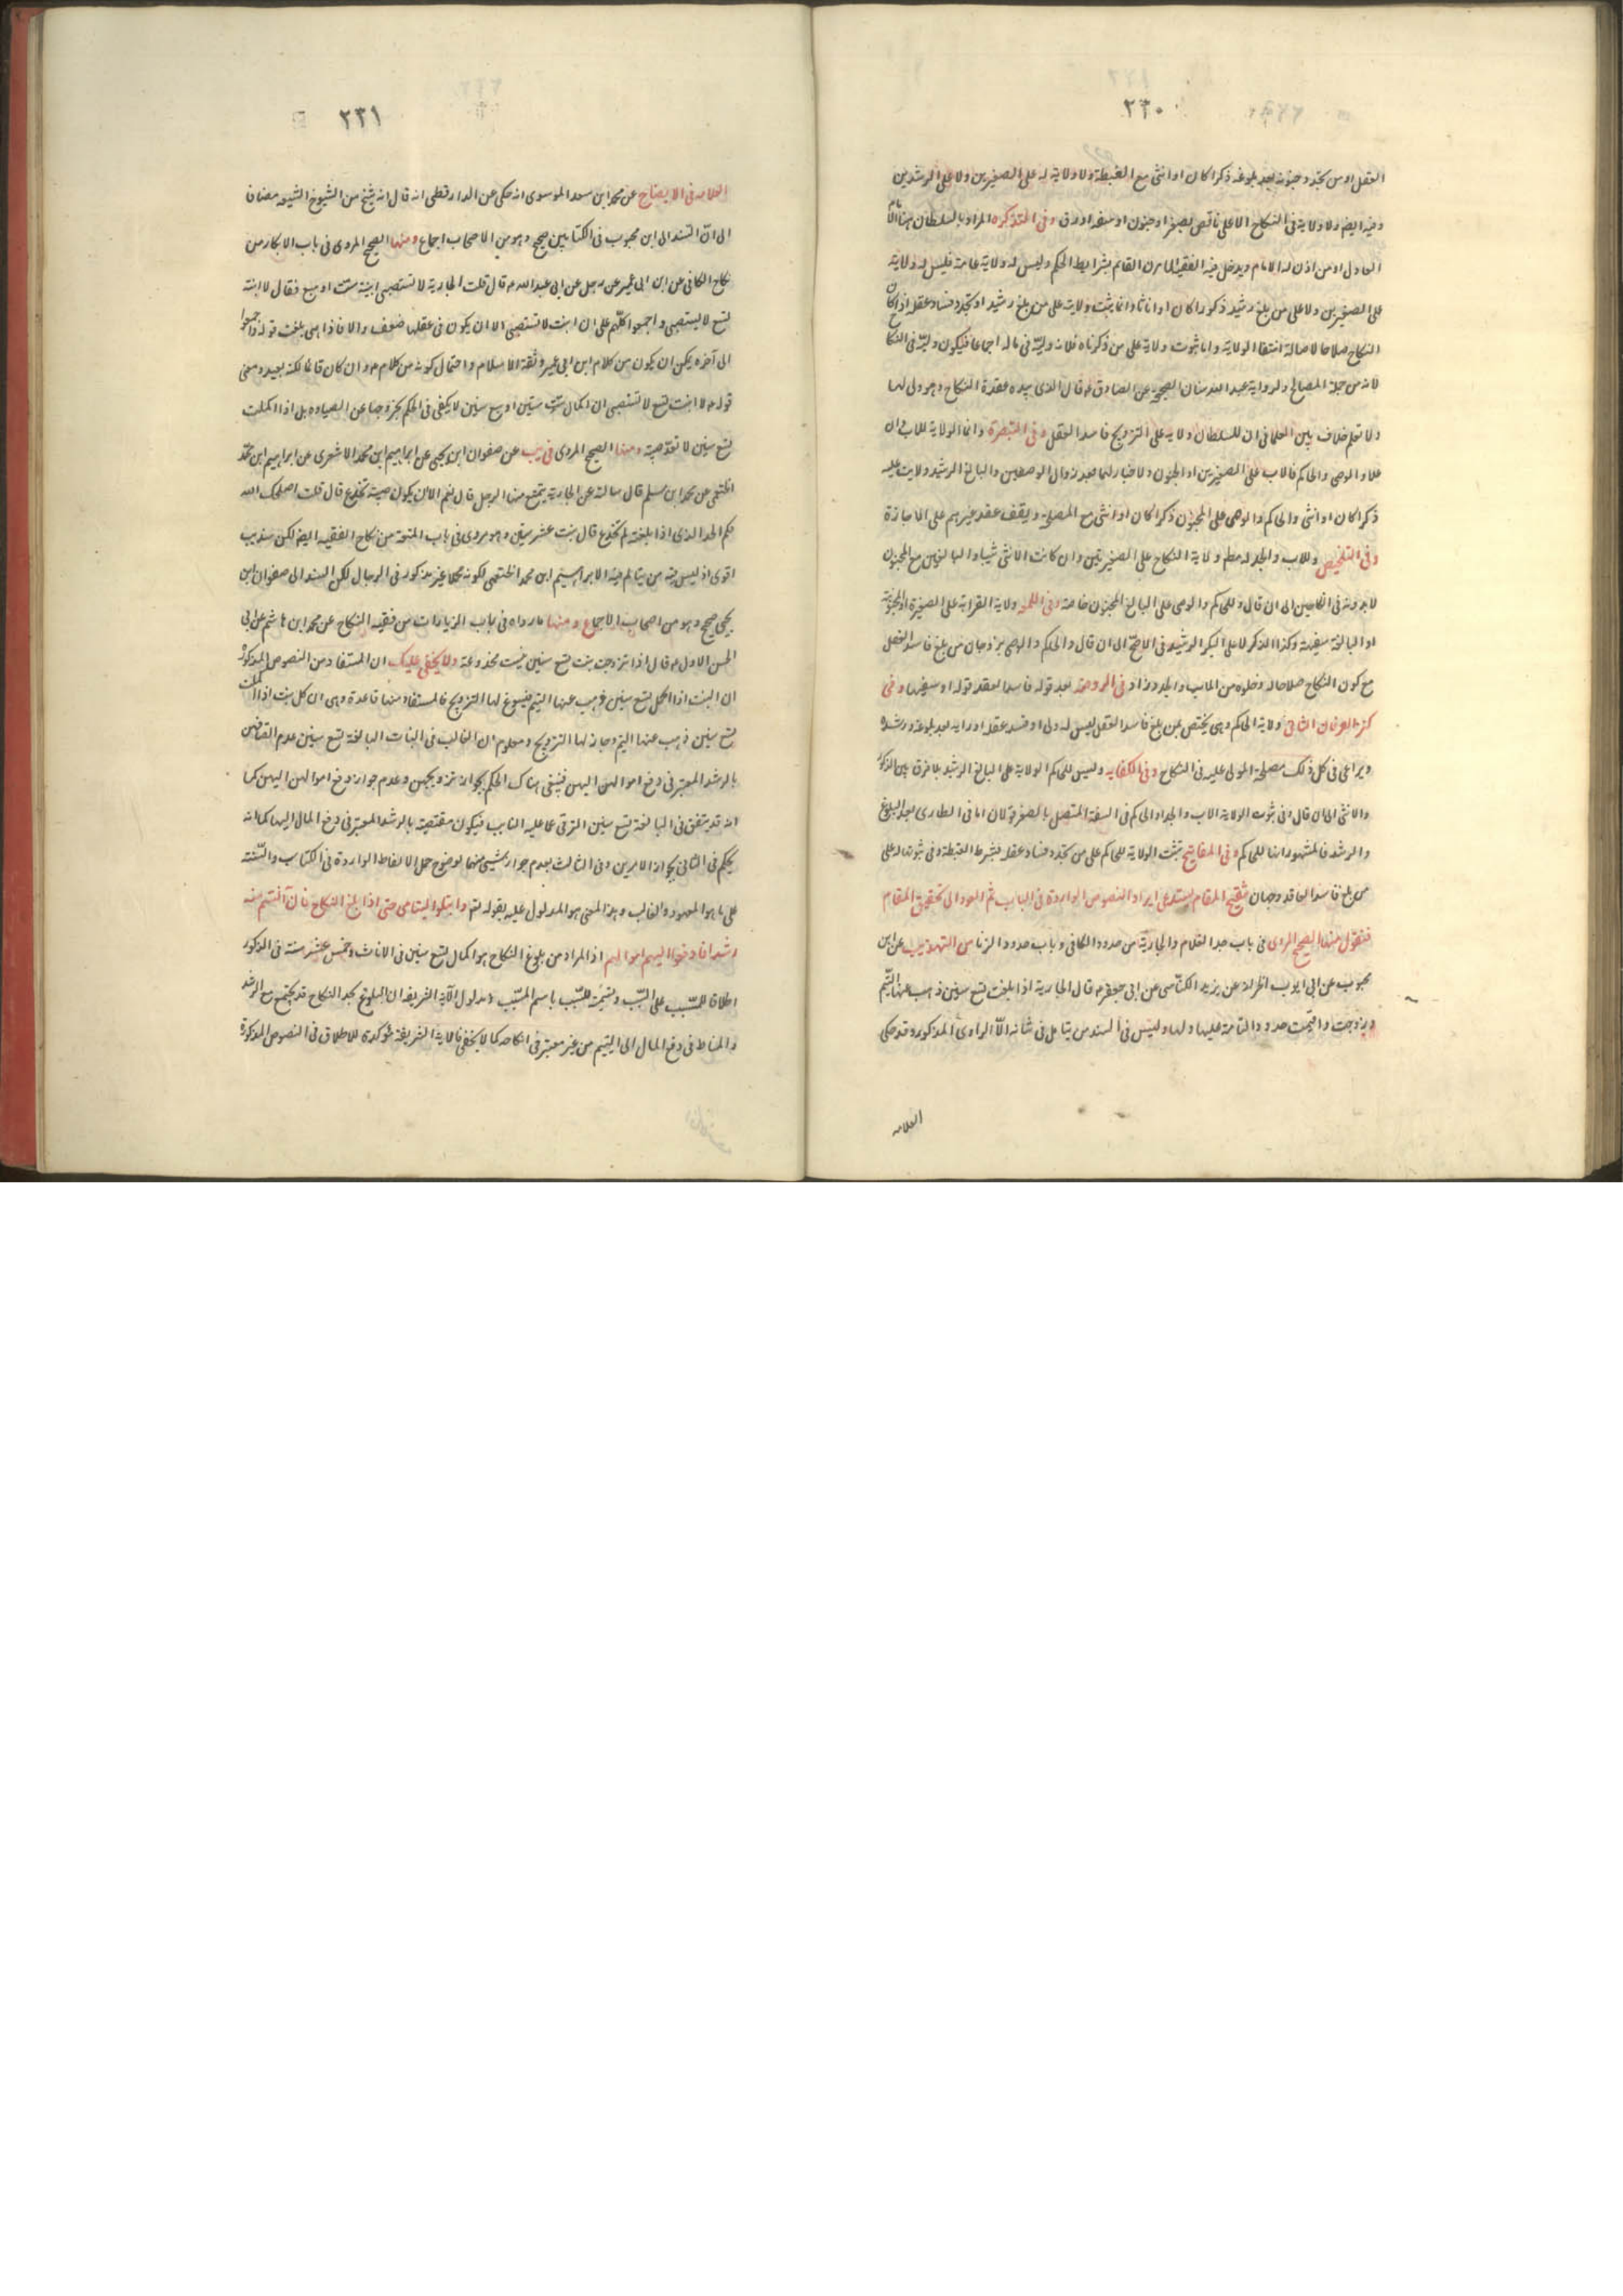 ٢٣٠
العقل او من تجدد جنونه بعد بلوغه ذكرا كان او انثى مع الغبطة ولا ولاية له على الصغيرين ولا على الرشيدين
وفيه ايضا ولا ولاية في النكاح الا على ناقص بصغر او جنون او سفه او رق وفي التذكرة المراد بالسلطان هنا الامام
العادل او من اذن له الامام ويدخل فيه الفقيه المأمون القائم بشرايط الحكم وليس له ولاية عامة فليس له ولاية
على الصغيرين ولا على من بلغ رشيدا ذكورا كان او اناثا وانما يثبت ولايته على من بلغ رشيدا وتجدد فساد عقله اذا كان
النكاح صلاحا لاصالة انتفا الولاية واما ثبوت ولايته على من ذكرناه فلانه وليه في ماله اجماعا فيكون وليه في النكاح
لانه من جملة المصالح ولرواية عبد الله سنان الصحيحة عن الصادق ع قال الذي بيده عقدة النكاح وهو ولي لها
ولا نعلم خلاف بين العلما في ان للسلطان ولاية على التزويج فاسد العقل وفي التبصرة وانما الولاية للاب وان
علا والوصي والحاكم فالاب على الصغيرين او الجنون ولا خيار لهما بعد زوال الوصفين والبالغ الرشيد ولايت عليه
ذكرا كان او انثى والحاكم والوصي على المجنون ذكرا كان او انثى مع المصلحة ويقف عقد غيرهم على الاجازة
وفي التلخيص وللاب والجد له مط ولاية النكاح على الصغيرتين وان كانت الانثى ثيبا والبالغين مع الجنون
لا بدونه في الناحيين الى ان قال وللحاكم والوصي على البالغ المجنون خاصة وفي اللمعه ولاية القرابة على الصغيرة او المجنونة
او البالغة سفيهة وكذا الذكر لا على البكر الرشيد في الاصح الى ان قال والحاكم والوصي يزوجان من بلغ فاسد العقل
مع كون النكاح صلاحا له وخلوه من الاب والجد وزاد في الروضة بعد قوله فاسد العقد قوله او سفيها وفي
كنز العرفان الثاني ولاية الحاكم وهي يختص بمن بلغ فاسد العقل ليس له ولي او فسد عقله او رايه بعد بلوغه ورشده
ويراعى في كل ذلك مصلحة المولى عليه في النكاح وفي الكفايه وليس للحاكم الولاية على البالغ الرشيد بلا فرق بين الذكور
والانثى الى ان قال وفي ثبوت الولاية الاب والجد او الحاكم في السفه المتصل بالصغر قولان اما في الطارى بعد البلوغ
والرشد فالمشهور انها للحاكم وفي المفاتيح تثبت الولاية للحاكم على من تجدد فساد عقله بشرط الغبطة وفي ثبوتها له على
من بلغ فاسد العاقد وجهان تنقيح المقام يستدعي ايراد النصوص الواردة في الباب ثم العود الى تحقيق المقام
فنقول منها الصحيح المروي في باب حد الغلام والجارية من حدود الكافي وباب حدود الزنا من التهذيب عن ابن
محبوب عن ابي ايوب الخزاز عن يزيد الكناسي عن ابي جعفر ع قال الجارية اذا بلغت تسع سنين ذهب عنها اليتم
وزوجت واقيمت حدود التامة عليها ولها وليس في السند من يتامل في شانه الا الراوي المذكور وقد حكى
العلامه
٢٣١
العلامه في الايضاح عن محمد ابن سعد الموسوي انه حكى عن الدارقطني انه قال انه شيخ من الشيوخ الشيعه مضافا
الى ان السند الى ابن محبوب في الكتابين صحيح وهو من الاصحاب اجماع ومنها الصحيح المروي في باب الابكار من
نكاح الكافي عن ابن ابي عمير عن رجل عن ابي عبد الله ع قال قلت الجارية لا تستصبي ابنة ست او سبع فقال لا ابنة
تسع لا يستصبى واجمعوا كلهم على ان ابنت لا تستصبى الا ان يكون في عقلها ضعف والا فاذا هي بلغت قوله واجمعوا
الى آخره يمكن ان يكون من كلام ابن ابي عمير وثقة الاسلام واحتمال كونه من كلامه ع وان كان قائما لكنه بعيد ومعنى
قوله ع لا ابنت تسع لا تستصبى ان اكمال ست سنين او سبع سنين لا يكفي في الحكم بخروجها عن الصباوه بل اذا اكملت
تسع سنين لا تعد صبية ومنها الصحيح المروي في يب عن صفوان ابن يحيى عن ابراهيم ابن محمد الاشعري عن ابراهيم ابن محمد
الخثعمي عن محمد ابن مسلم قال سالته عن الجارية يتمتع منها الرجل قال نعم الا ان يكون صبية تخدع قال قلت اصلحك الله
فكم الحد الذي اذا بلغته لم تخدع قال بنت عشر سنين وهو مروي في باب المتعة من نكاح الفقيه ايضا لكن سند يب
اقوى اذ ليس فيه من يتامل فيه الا ابراهيم ابن محمد الخثعمي لكونه مهملا غير مذكور في الرجال لكن السند الى صفوان ابن
يحيى صحيح وهو من اصحاب الاجماع ومنها ما رواه في باب الزيادات من فقيه النكاح عن محمد ابن هاشم عن ابي
الحسن الاول ع قال اذا تزوجت بنت تسع سنين فليست مخدوعة ولا يخفى عليك ان المستفاد من النصوص المذكورة
ان البنت اذا اكمل تسع سنين ذهب عنها اليتم فيسوغ لها التزويج فالمستفاد منها قاعدة وهي ان كل بنت اذا اكملت
تسع سنين ذهب عنها اليتم وجاز لها التزويج ومعلوم ان الغالب في البنات البالغة تسع سنين عدم اتصافهن
بالرشد المعتبر في دفع اموالهن اليهن فينبغي هناك الحكم بجواز تزويجهن وعدم جواز دفع اموالهن اليهن كما
انه قد يتفق في البالغة تسع سنين الترقي عما عليه الغالب فيكون مقتضيه بالرشد المعتبر في دفع المال اليها كما انه
يحكم في الثاني بجواز الامرين وفي الثالث بعدم جواز شيئ منهما لوضوح حمل الالفاظ الواردة في الكتاب والسنة
على ما هو المعهود والغالب وهذا المعنى هو المدلول عليه بقوله تعالى وابتلوا اليتامى حتى اذا بلغ النكاح فان آنستم منه
رشدا فادفعوا اليهم اموالهم اذ المراد من بلوغ النكاح هو اكمال تسع سنين في الاناث وخمس عشر سنة في الذكور
اطلاقا للمسبب على السبب وتسمية للسبب باسم المسبب ومدلول الآية الشريفة ان البلوغ بحد النكاح قد يجتمع مع الرشد
والمناط في دفع المال الى اليتيم من غير معتبر في انكاحه كما لا يخفى فالاية الشريفة مؤكدة للاطلاق في النصوص المذكورة